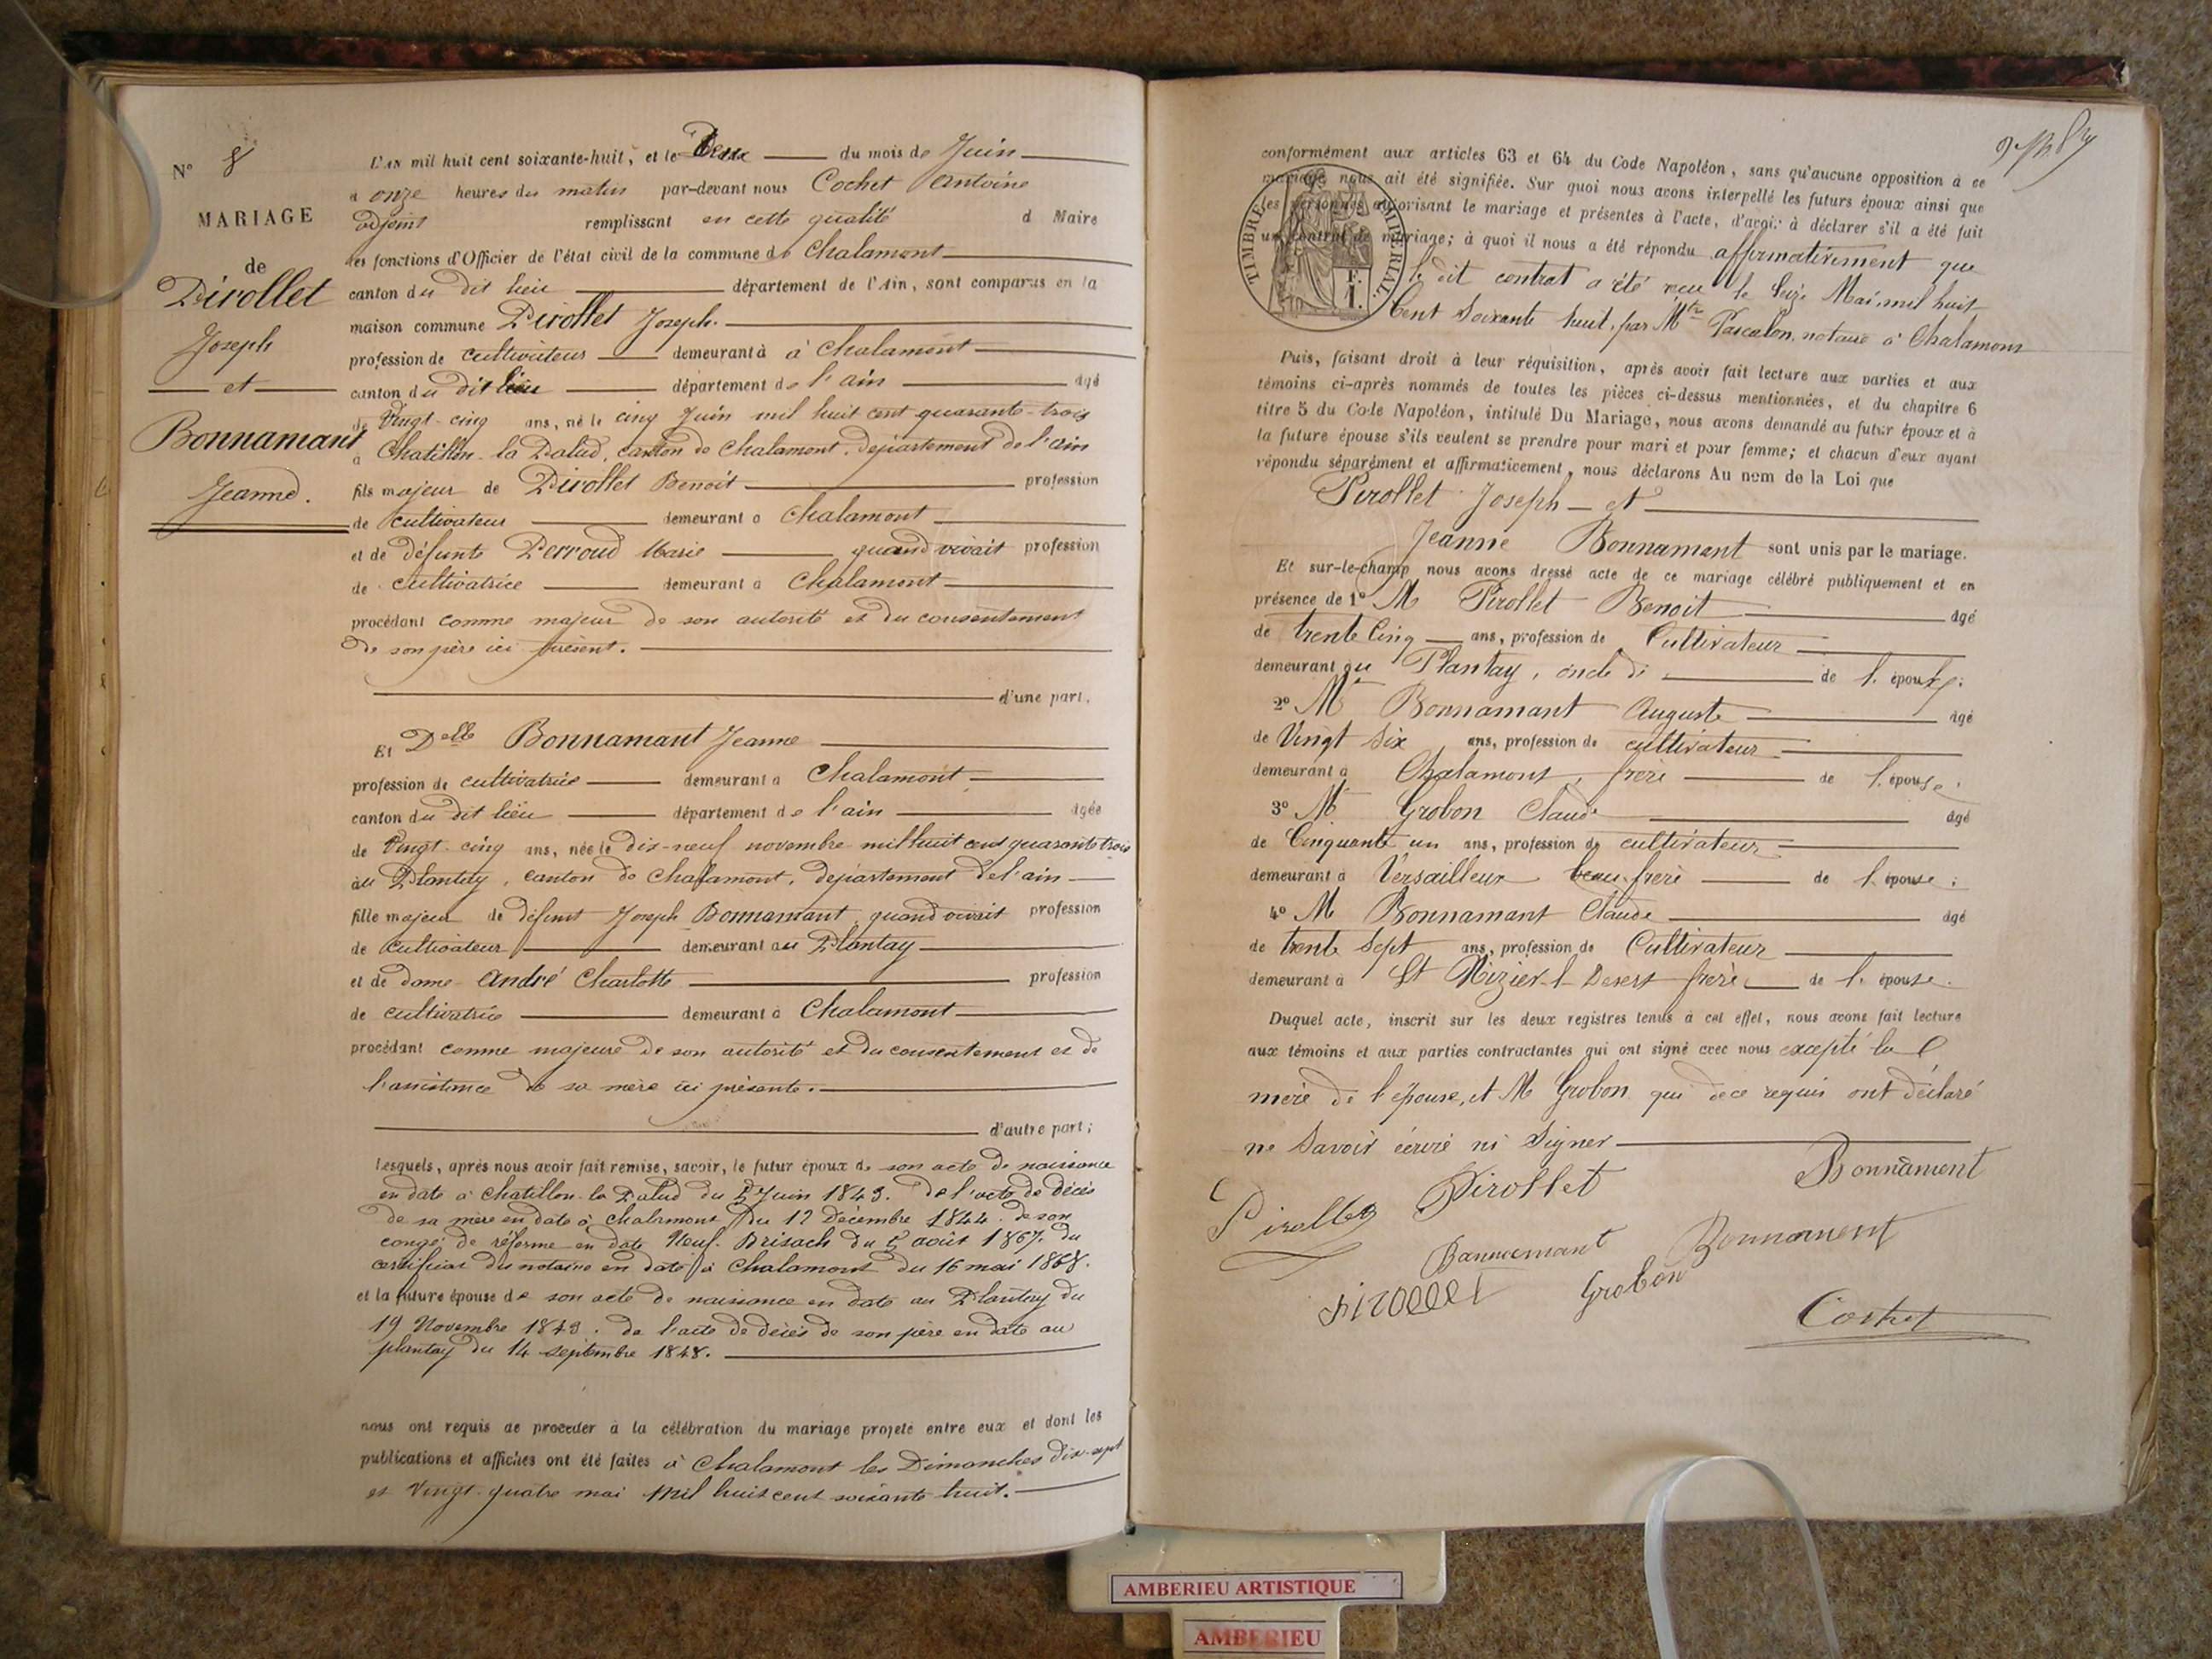 N° 8
MARIAGE
de
Pirollet
Joseph
et
Bonnamant
Jeanne.
L'AN mil huit cent soixante-huit, et le Deux du mois de Juin
à onze heures du matin par-devant nous Cochet Antoine
adjoint remplissant en cette qualité d Maire
les fonctions d'Officier de l'état civil de la commune de Chalamont
canton du dit lieu département de l'Ain, sont comparus en la
maison commune Pirollet Joseph.
profession de cultivateur demeurant à à Chalamont
canton du dit lieu département de l'ain âgé
de Vingt-cinq ans, né le cinq Juin mil huit cent quarante-trois
à Chatillon-la Palud, canton de Chalamont, département de l'ain
fils majeur de Pirollet Benoit profession
de cultivateur demeurant à Chalamont
et de défunte Perroud Marie quand vivait profession
de cultivatrice demeurant à Chalamont
procédant comme majeur de son autorité et du consentement
de son père ici présent.
d'une part.
Et Delle Bonnamant Jeanne
profession de cultivatrice demeurant à Chalamont
canton du dit lieu département de l'ain âgée
de Vingt-cinq ans, née le dix-neuf novembre mil huit cent quarante trois
au Plantay, canton de Chalamont, département de l'ain
fille majeur de défunt Joseph Bonnamant, quand vivait profession
de cultivateur demeurant au Plantay
et de dame André Charlotte profession
de cultivatrice demeurant à Chalamont
procédant comme majeure de son autorité et du consentement et de
l'assistance de sa mère ici présente.
d'autre part;
Lesquels, après nous avoir fait remise, savoir, le futur époux de son acte de naissance
en date à Chatillon-la Palud du 5 Juin 1843. de l'acte de décès
de sa mère en date à Chalamont du 12 Décembre 1844. de son
congé de réforme en date Neuf-Brisach du 5 août 1867. du
certificat du notaire en date à Chalamont du 16 mai 1868.
et la future épouse de son acte de naissance en date au Plantay du
19 Novembre 1843. de l'acte de décès de son père en date au
plantay du 14 septembre 1848.
nous ont requis de procéder à la célébration du mariage projeté entre eux et dont les
publications et affiches ont été faites à Chalamont les Dimanches dix-sept
et Vingt-quatre mai mil huit cent soixante huit.
conformément aux articles 63 et 64 du Code Napoléon, sans qu'aucune opposition à ce
mariage nous ait été signifiée. Sur quoi nous avons interpellé les futurs époux ainsi que
les personnes autorisant le mariage et présentes à l'acte, d'avoir à déclarer s'il a été fait
un contrat de mariage; à quoi il nous a été répondu affirmativement que
le dit contrat a été reçu le Seize Mai mil huit
Cent Soixante huit, par Mtre Pascalon, notaire à Chalamont
TIMBRE IMPÉRIAL
F.
1.
Puis, faisant droit à leur réquisition, après avoir fait lecture aux parties et aux
témoins ci-après nommés de toutes les pièces ci-dessus mentionnées, et du chapitre 6
titre 5 du Code Napoléon, intitulé Du Mariage, nous avons demandé au futur époux et à
la future épouse s'ils veulent se prendre pour mari et pour femme; et chacun d'eux ayant
répondu séparément et affirmativement, nous déclarons Au nom de la Loi que
Pirollet Joseph et
Jeanne Bonnamant sont unis par le mariage.
Et sur-le-champ nous avons dressé acte de ce mariage célébré publiquement et en
présence de 1° M Pirollet Benoit âgé
de trente Cinq ans, profession de Cultivateur
demeurant au Plantay, oncle de de l. époux;
2° M Bonnamant Auguste âgé
de Vingt Six ans, profession de cultivateur
demeurant à Chalamont, frère de l. épouse;
3° M Grobon Claude âgé
de Cinquante un ans, profession de cultivateur
demeurant à Versailleux beau-frère de l. épouse;
4° M Bonnamant Claude âgé
de trente Sept ans, profession de Cultivateur
demeurant à St Nizier-l-Desert frère de l. épouse.
Duquel acte, inscrit sur les deux registres tenus à cet effet, nous avons fait lecture
aux témoins et aux parties contractantes qui ont signé avec nous excepté la
mère de l'épouse, et M Grobon qui de ce requis ont déclaré
ne Savoir écrire ni Signer
Pirollet Pirollet Bonnament
Bannamant Bonnament
Pirollet Grobon
Cochet
AMBERIEU ARTISTIQUE
AMBERIEU